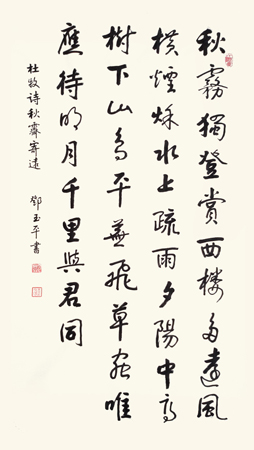 秋霧獨登賞西楼多遠風
横煙秋水上疏雨夕陽中高
樹下山鸟平蕪飛草虫唯
應待明月千里與君同
杜牧诗秋霽寄遠 鄧玉平書